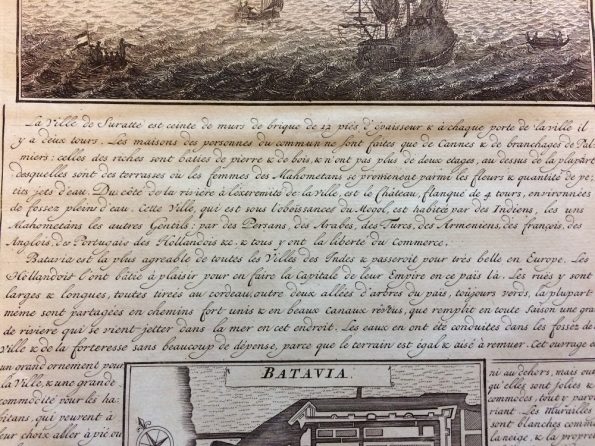 La Ville de Suratte est ceinte de murs de brique de 12 piés d'épaisseur & à chaque porte de la ville il
y a deux tours. Les maisons des personnes du commun ne sont faites que de Cannes & de branchages de Pal
miers: celles des riches sont baties de pierre & de bois, & n'ont pas plus de deux etages, au dessus de la plupart
desquelles sont des terrasses ou les femmes des Mahometans se promenent parmi les fleurs & quantité de pe,
tits jets d'eau. Du côté de la riviere à l'extremité de la Ville est le Château, flanqué de 4 tours, environnées
de fossez pleins d'eau. Cette Ville, qui est sous l'obeissances du Mogol, est habitée par des Indiens, les uns
Mahometans les autres Gentils: par des Persans, des Arabes, des Turcs, des Armeniens, des françois, des
Anglois, des Portugais des Hollandois &c. & tous y ont la liberté du commerce.
Batavia est la plus agreable de toutes les Villes des Indes & passeroit pour très belle en Europe. Les
Hollandois l'ont bâtie à plaisir pour en faire la Capitale de leur Empire en ce païs là. Les ruës y sont
larges & longues, toutes tirées au cordeau, outre deux allées d'arbres du païs, toûjours verds, la plupart
même sont partagées en chemins fort unis & en beaux canaux revêtus, que remplit en toute Saison une gran
de riviere qui se vient jetter dans la mer en cet endroit. Les eaux en ont été conduites dans les fossez de la
Ville & de la forteresse sans beaucoup de dépense, parce que le terrain est égal & aisé à remuer. Cet ouvrage est
un grand ornement pour
la Ville, & une grande
commodité pour les ha:
bitans, qui peuvent à
leur choix aller à pié ou
BATAVIA.
ni au dehors, mais
qu'elles sont jolies &
commodes, tout y
riant. Les Murailles
sont blanches comme
la neige, & la propre